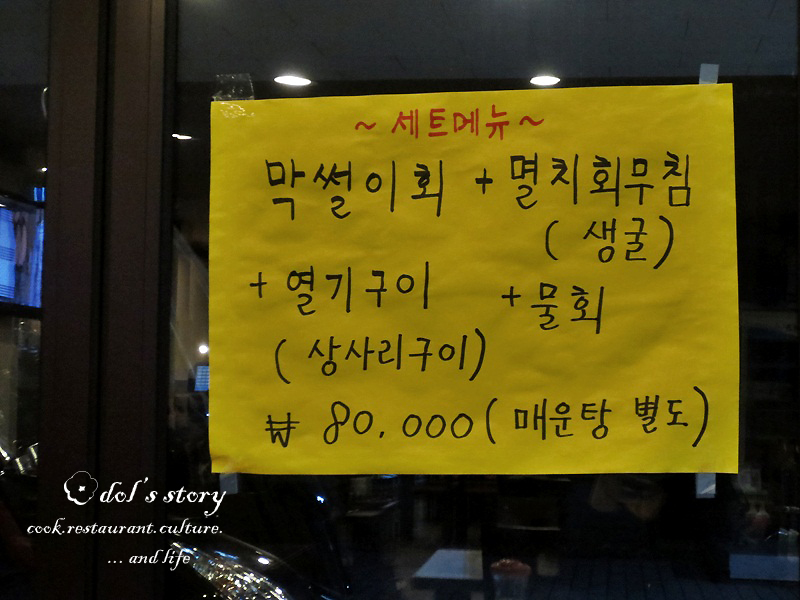 ~ 세트메뉴 ~
막썰이회 + 멸치회무침
( 생굴)
+ 열기구이 + 물회
( 상사리구이)
₩ 80.000 ( 매운탕 별도)
dol's story
cook.restaurant.culture.
... and life